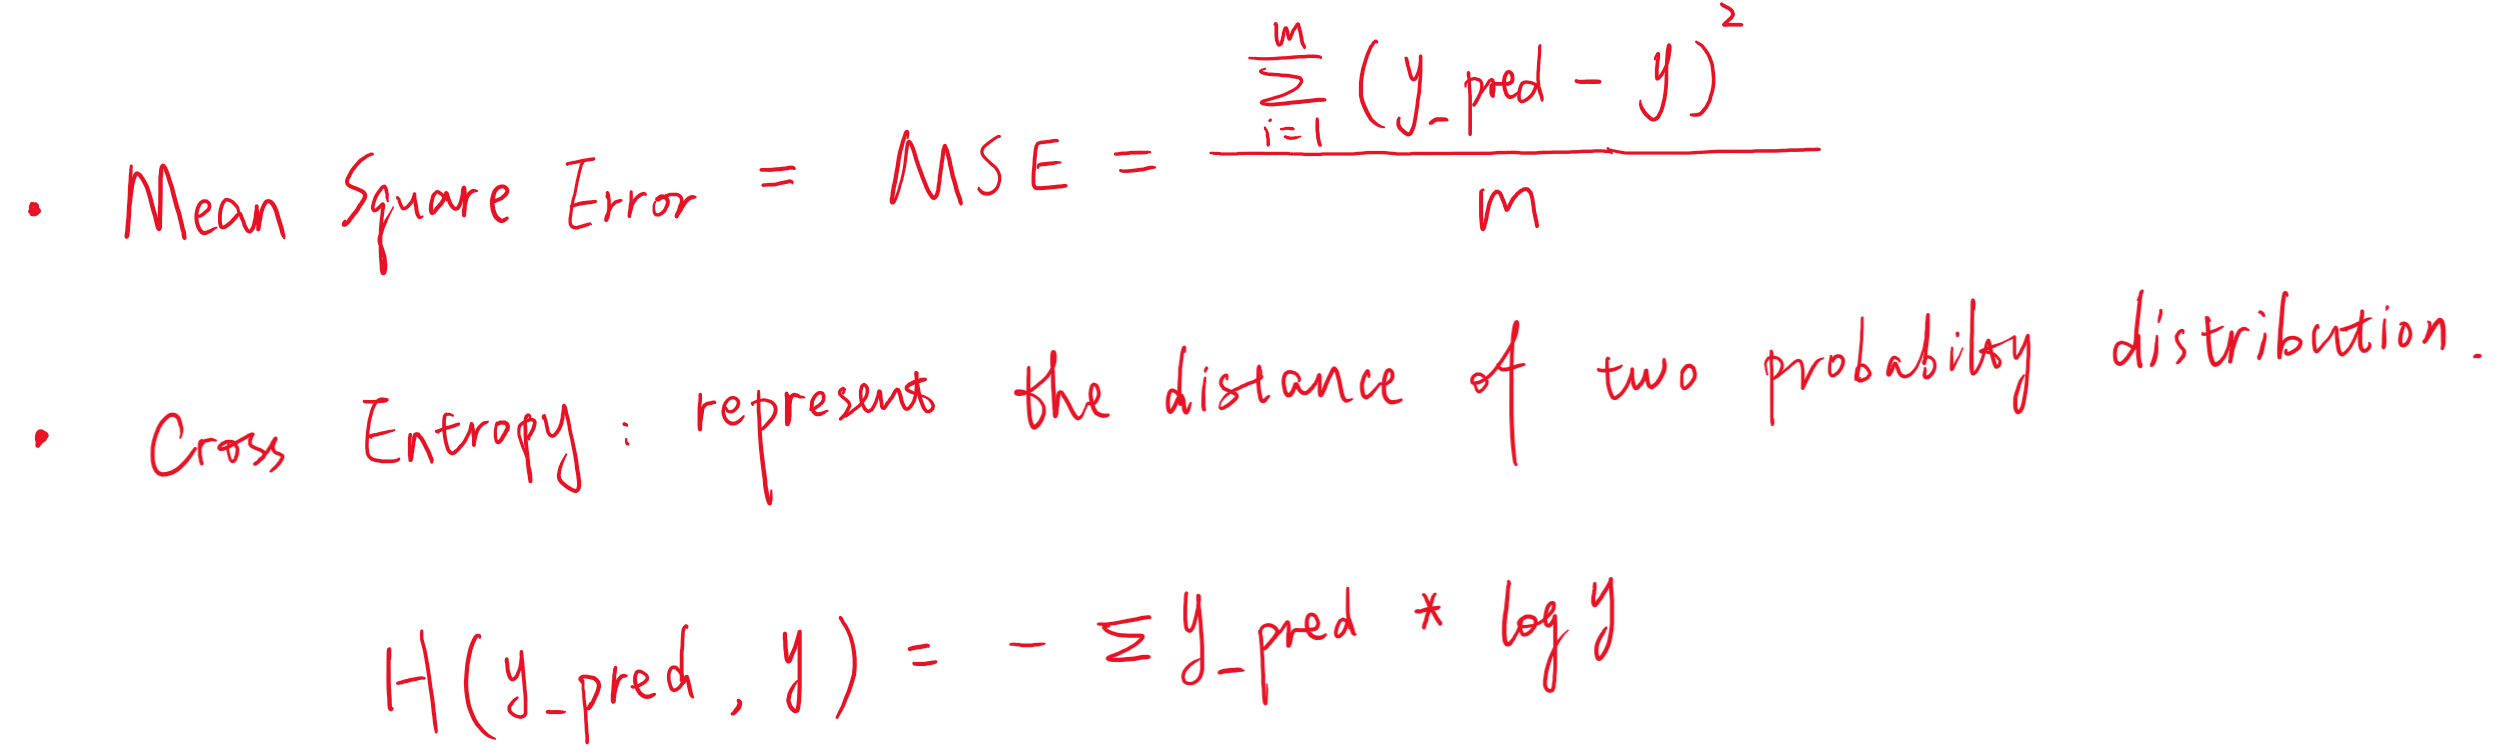 • Mean Square Error = MSE = \frac{\sum_{i=1}^{m} (y_pred - y)^2}{m}
• Cross Entropy : represents the distance of two probability distribution.
H(y_pred, y) = - Σ y_pred * log y